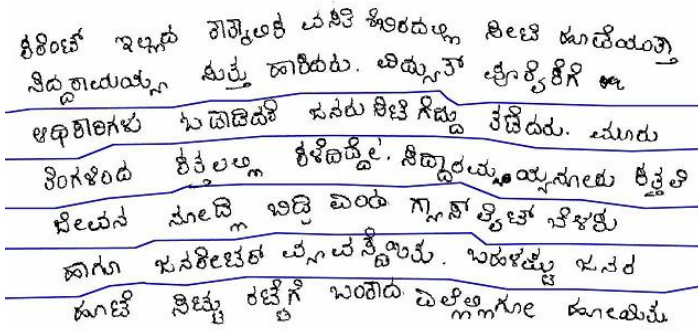 ಕರೆಂಟ್ ಇಲ್ಲದ ತಾತ್ಕಾಲಿಕ ವಸತಿ ಶಿಬಿರದಲ್ಲಿ ಸೀಟಿ ಊದೆಯುತ್ತಾ
ಸಿದ್ದರಾಮಯ್ಯ ಸುತ್ತು ಹಾಕಿದರು. ವಿದ್ಯುತ್ ಪೂರೈಕೆಗೆ
ಅಧಿಕಾರಿಗಳು ಓಡಾಡಿದರೆ ಜನರು ಸಿಟಿಗೆದ್ದು ತಡೆದರು. ಮೂರು
ತಿಂಗಳಿಂದ ಕತ್ತಲಲ್ಲಿ ಕಳೆದಿದ್ದೇವೆ. ಸಿದ್ದರಾಮಯ್ಯನೋರು ಕತ್ತಲೆ
ಜೀವನ ನೋಡ್ಲಿ ಬಿಡ್ರಿ ಎಂದು ಗ್ಯಾಸ್ ಲೈಟ್ ಬೆಳಕು
ಹಾಗೂ ಜನರೇಟರ್ ವ್ಯವಸ್ಥೆಯಿತು. ಬಹಳಷ್ಟು ಜನರ
ಹೊಟ್ಟೆ ಸಿಟ್ಟು ರಟ್ಟೆಗೆ ಬಂದಾದ ಎಲ್ಲೆಲ್ಲಿಗೋ ಹೋಯಿತು